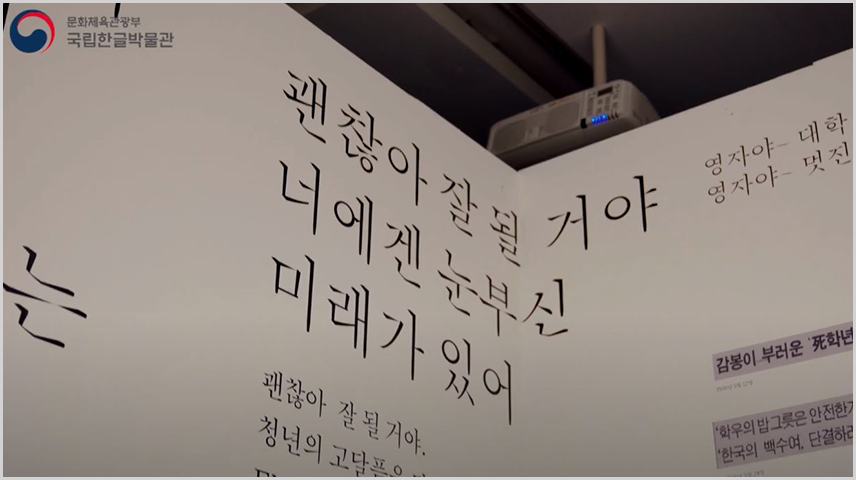 문화체육관광부
국립한글박물관
괜찮아 잘 될 거야
너에겐 눈부신
미래가 있어
괜찮아 잘 될 거야.
청년의
는
영자야~ 대학
영자야~ 멋진
감봉이 부러운 '死학년
'학우의 밥그릇은 안전한가
'한국의 백수여, 단결하라